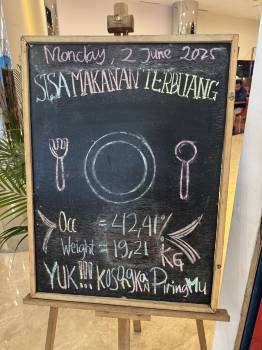 Monday, 2 June 2025
SISA MAKANAN TERBUANG
Occ = 42,41%
Weight = 19,21 KG
YUK!!! KOSONGKAN PiringMu